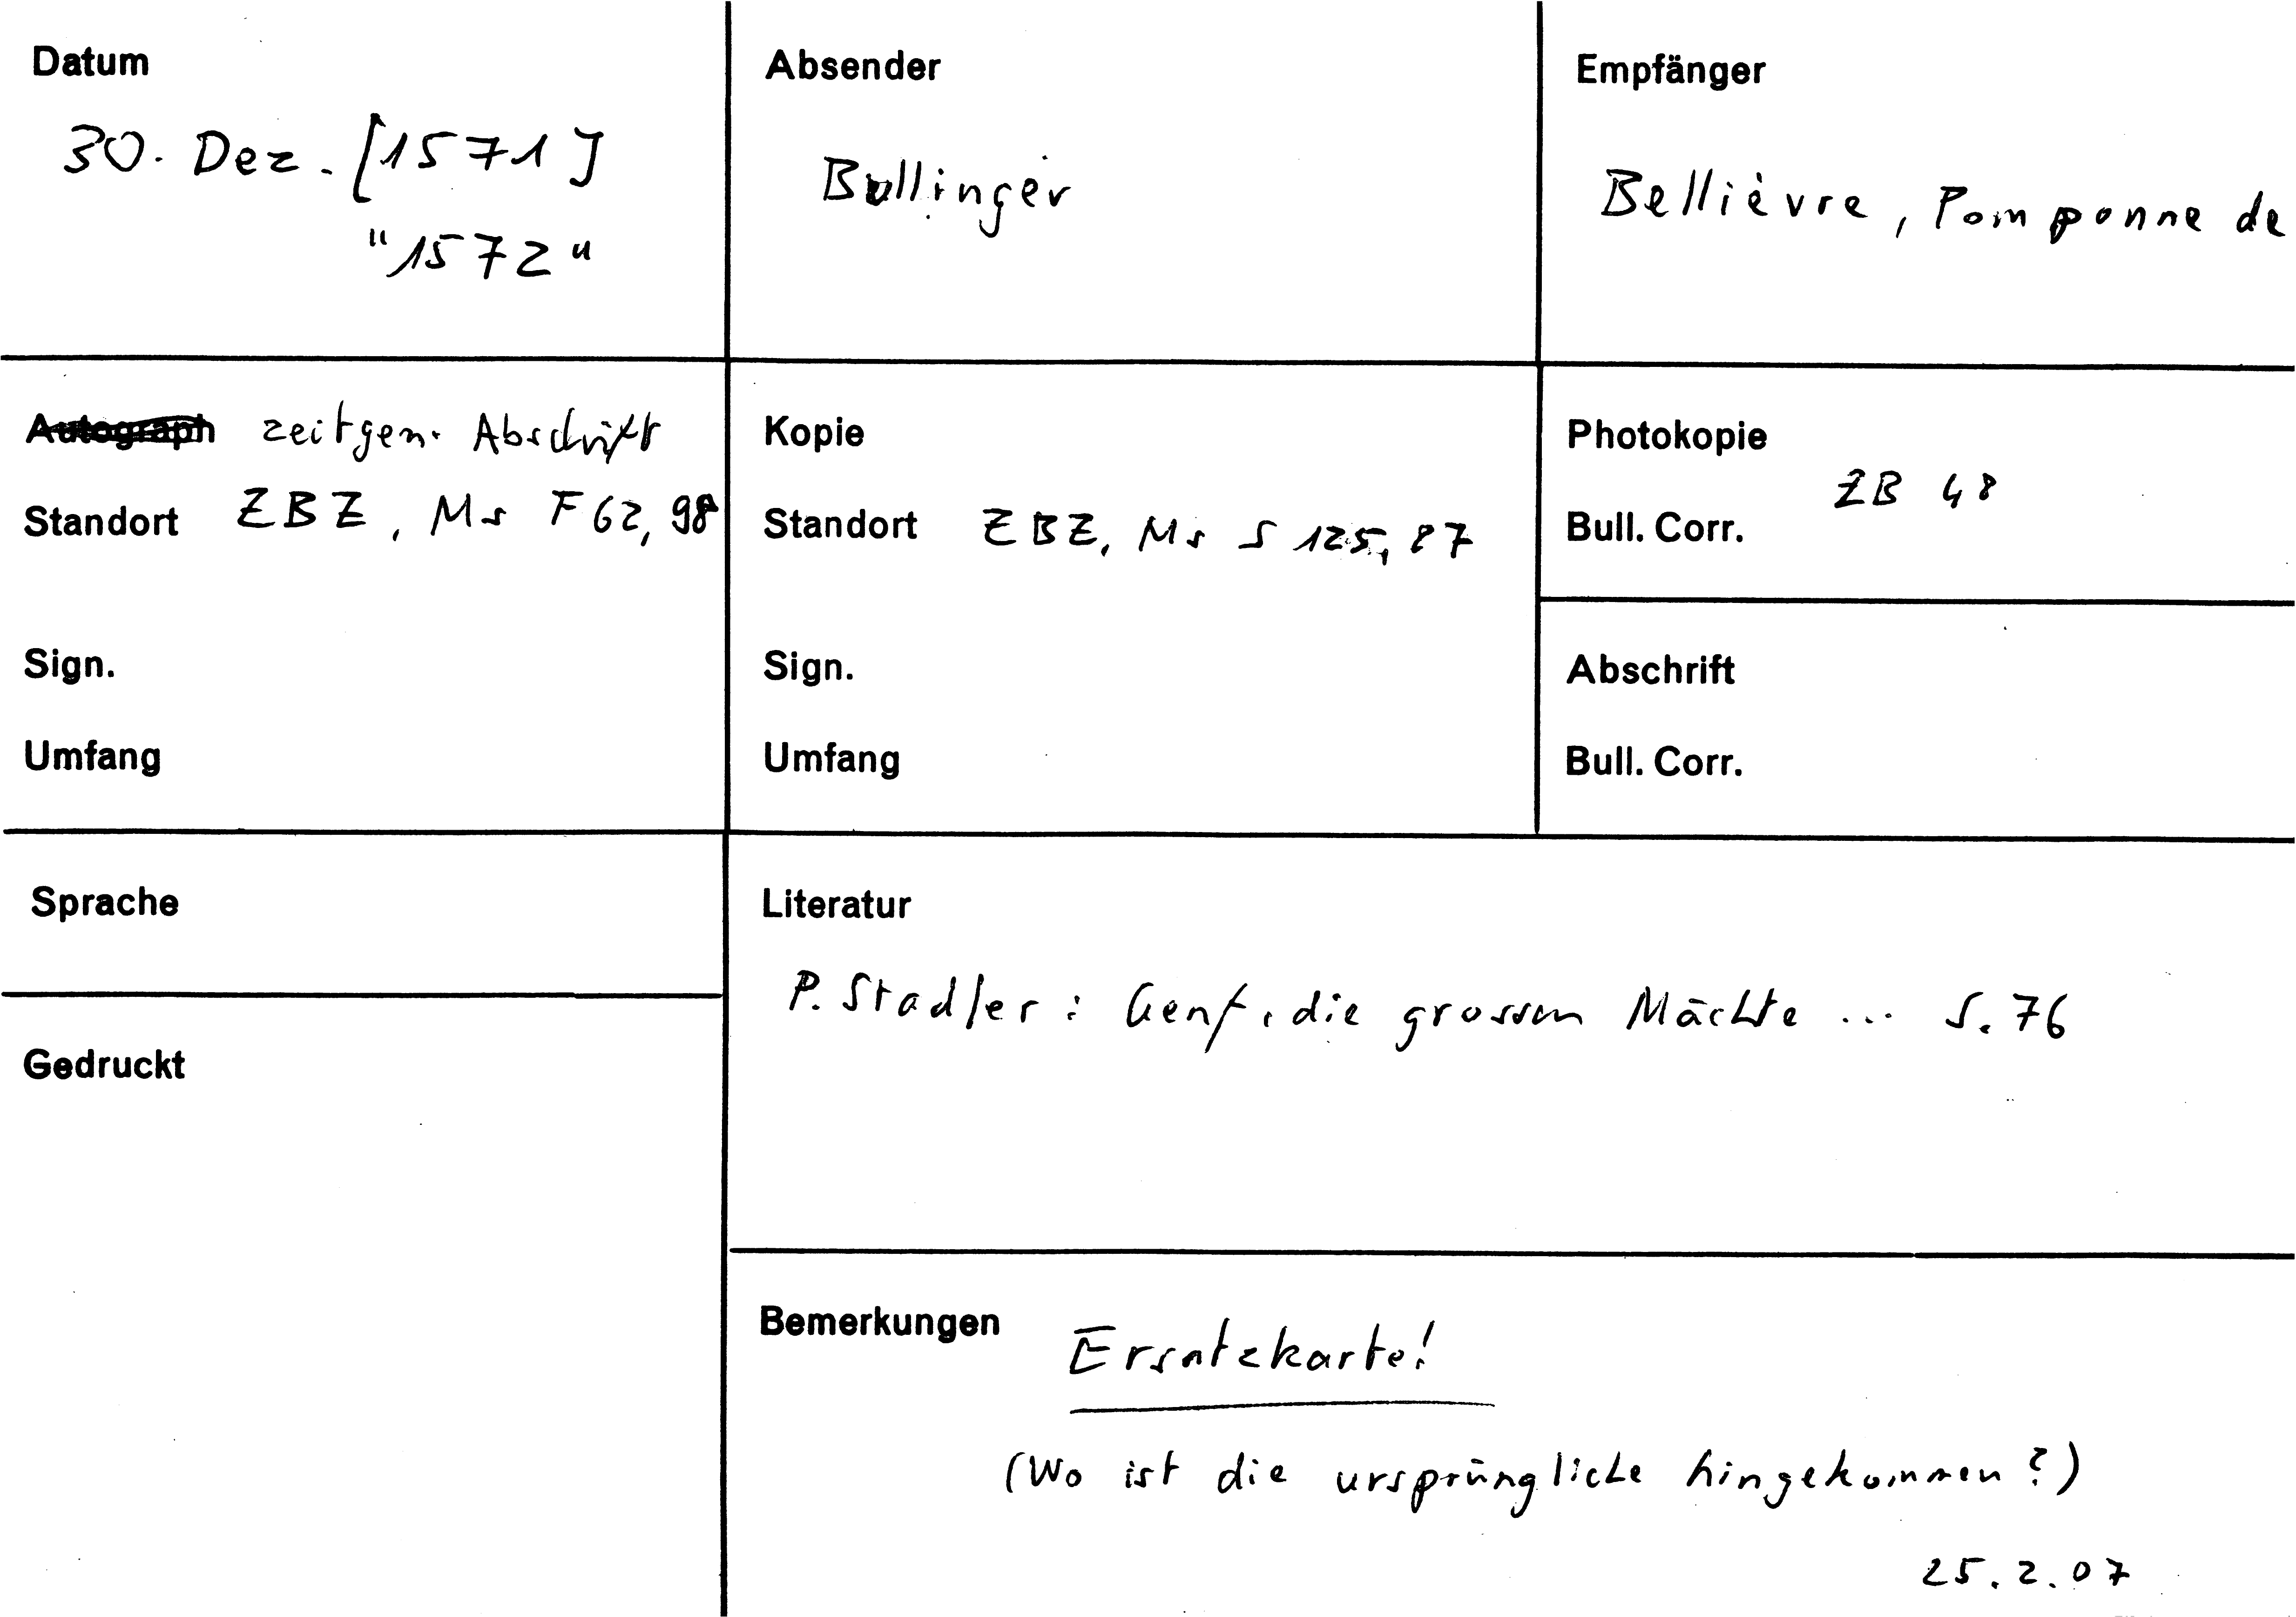 Datum
30. Dez. [1571]
"1572"
Absender
Bullinger
Empfänger
Bellièvre, Pomponne de
Autograph zeitgen. Abschrift
Standort ZBZ, Ms F 62, 98
Sign.
Umfang
Kopie
Standort ZBZ, Ms S 125, 87
Sign.
Umfang
Photokopie
ZB 48
Bull. Corr.
Abschrift
Bull. Corr.
Sprache
Gedruckt
Literatur
P. Stadler: Genf, die grossen Mächte ... S. 76
Bemerkungen Ersatzkarte!
(Wo ist die ursprüngliche hingekommen?)
25.2.07